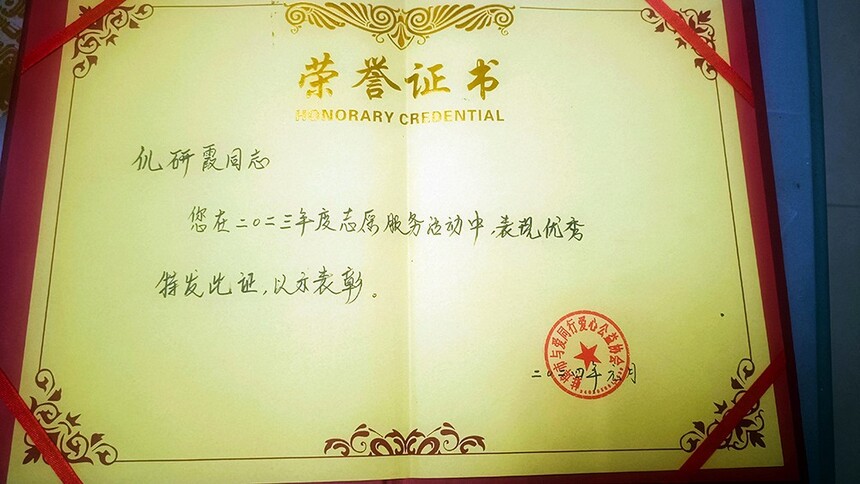 荣誉证书
HONORARY CREDENTIAL
仉研霞同志
您在二〇二三年度志愿服务活动中,表现优秀
特发此证,以示表彰。
市与爱同行爱心公益协会
二〇二四年元月